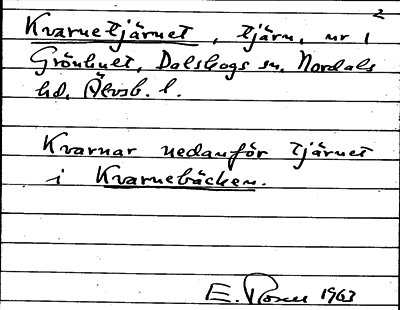 2
Kvarnetjärnet, tjärn, nr 1
Grönhult, Dalskogs sn. Nordals
hd. Älvsb. l.
Kvarnar nedanför tjärnet
i Kvarnebäcken.
E. Rosen 1963